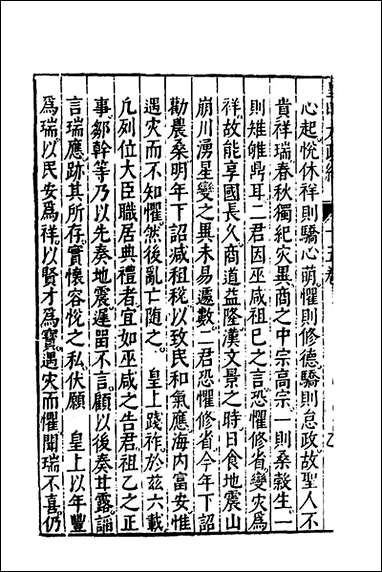 心起悅休祥則驕心萌懼則修德驕則怠政故聖人不
貴祥瑞春秋獨紀灾異商之中宗高宗一則桑穀生一
則雉雊鼎耳二君因巫咸祖已之言恐懼修省變灾爲
祥故能享國長久商道益隆漢文景之時日食地震山
崩川湧星變之異未易遽數二君恐懼修省今年下詔
勸農桑明年下詔减租稅以致民和氣應海内富安惟
遇灾而不知懼然後亂亡隨之　皇上踐祚於兹六載
凡列位大臣職居典禮者宜如巫咸之告君祖乙之正
事鄒幹等乃以先奏地震遲畱不言顧以後奏甘露謟
言瑞應跡其所存實懷容悅之私伏願　皇上以年豐
爲瑞以民安爲祥以賢才爲寶遇灾而懼聞瑞不喜仍